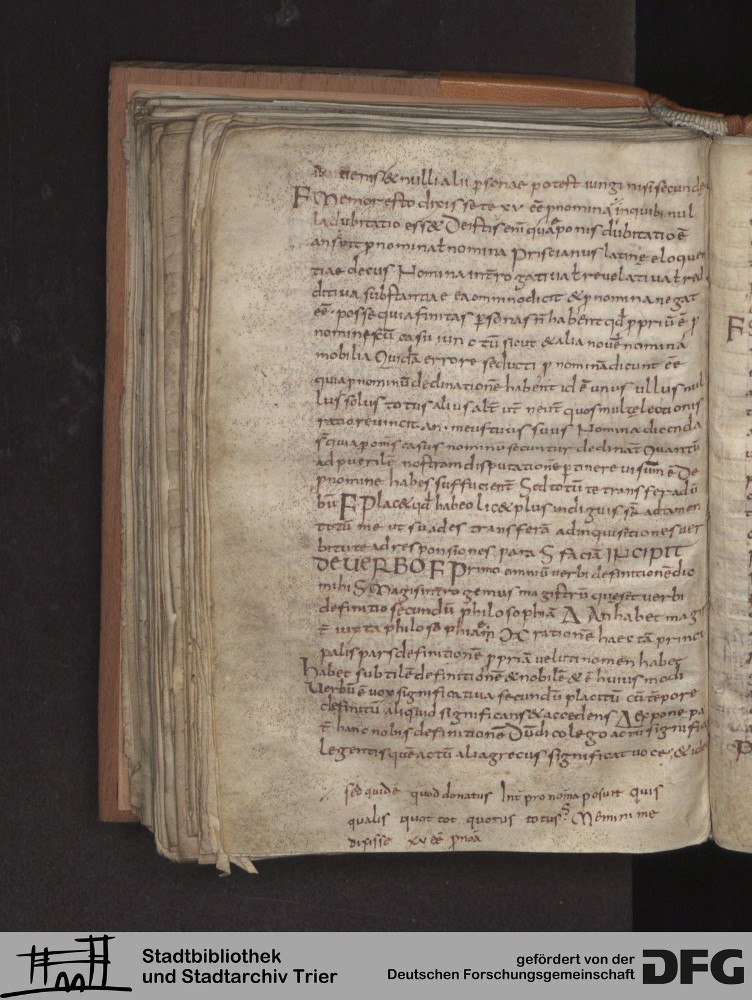 etiens & nulli alii psonae potest iungi nisi secundę
F Memor esto dixisse te xv eē pnomina in quib nul
la dubitatio ess& De istis eni quę a ponis dubitatio ē
an sint pnomina ł nomina Priscianus latinę eloquen
tiae decus Nomina interrogatiua ł reuelatiua ł red
ditiua substantiae ea omnino dicit & pnomina negat
eē posse quia finitas psonas n habent qđ ppriū ē p
nominū casu sicut & alia nouē nomina
mobilia Quidā errore seducti pnominā dicunt eē
quia pnominū declinationē habent id ē unus ullus nul
lus solus totus alius alt ut neut quos multę lectionis
ratio reuincit an meus tuus suus Nomina dicenda
s quia pnomis casus nominū secuntur declinat Quantū
ad puerilē nostram disputationē ptinere uisum ē De
pnomine habes sufficient Sed totū te transfer ad u
bū F Plac& qđ habeo lic& plus indiguissē adtamen
totū me ut suades transferā ad inquisitiones uer
bi tu te ad responsiones para S faciā INCIPIT
DE UERBO F Primo omniū uerbi definitionē dic
mihi S Magis intro gemus magistrū quę sit uerbi
definitio secundū philosophiā Δ An habet magist
iuxta philosophiā in rationē haec tā princi
palis pars definitionē ppriā ueluti nomen habet
Habet subtilē definitionē & nobilē & ē huius modi
Uerbū ē uox significatiua secundū placitū cū tēpore
definitū aliquid significans & accedens Δ expone pa
hanc nobis definitionē Dūdico lego actū significo
legentis que actū alia grecus significat uoce & id
sed quidē quod donatus Int pronoīa posuit quis
qualis quot tot quotus totus S Memini me
dixisse xv eē pnoā
F
Stadtbibliothek
und Stadtarchiv Trier
gefördert von der
Deutschen Forschungsgemeinschaft
DFG